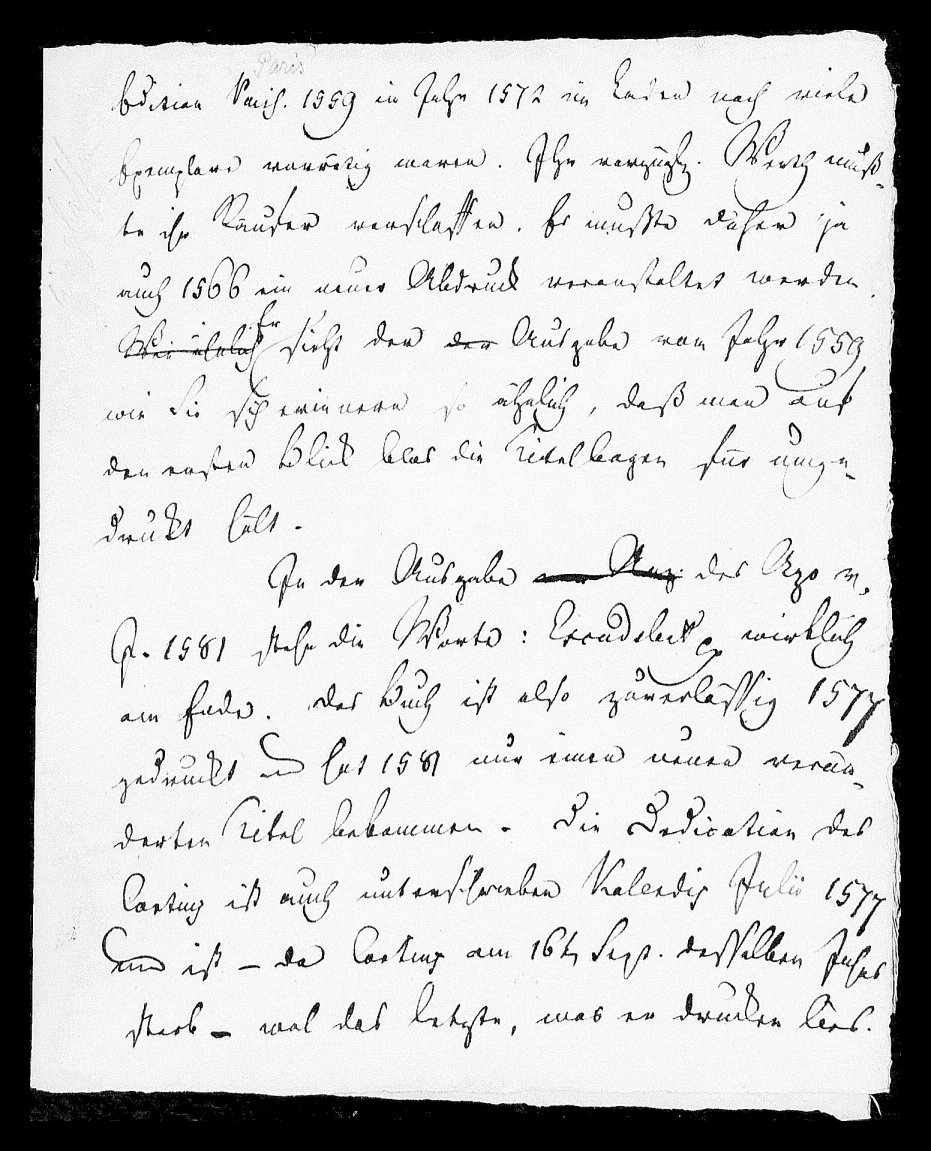 Paris
Edition Paris. 1559 im Jahr 1572 im Laden noch viele
Exemplare vorrätig waren. Ihr vorzügl. Werth muß-
te ihr Käufer verschaffen. Es mußte daher ja
auch 1566 ein neuer Abdruck veranstaltet werden.
Er
sieht der der Ausgabe vom Jahr 1559
wie Sie sich erinnern so ähnlich, daß man auf
den ersten Blick blos die Titelbogen für umge-
druckt hält.
In der Ausgabe des Apo v.
J. 1581 stehn die Worte: wirklich
am Ende. Das Buch ist also zuverlässig 1577
gedruckt und hat 1581 nur einen neuen verän-
derten Titel bekommen. Die Dedication des
ist auch unterschrieben Kalendis Julii 1577
und ist – da am 16t Sept. desselben Jahres
starb – wol das letzte, was er drucken lies.